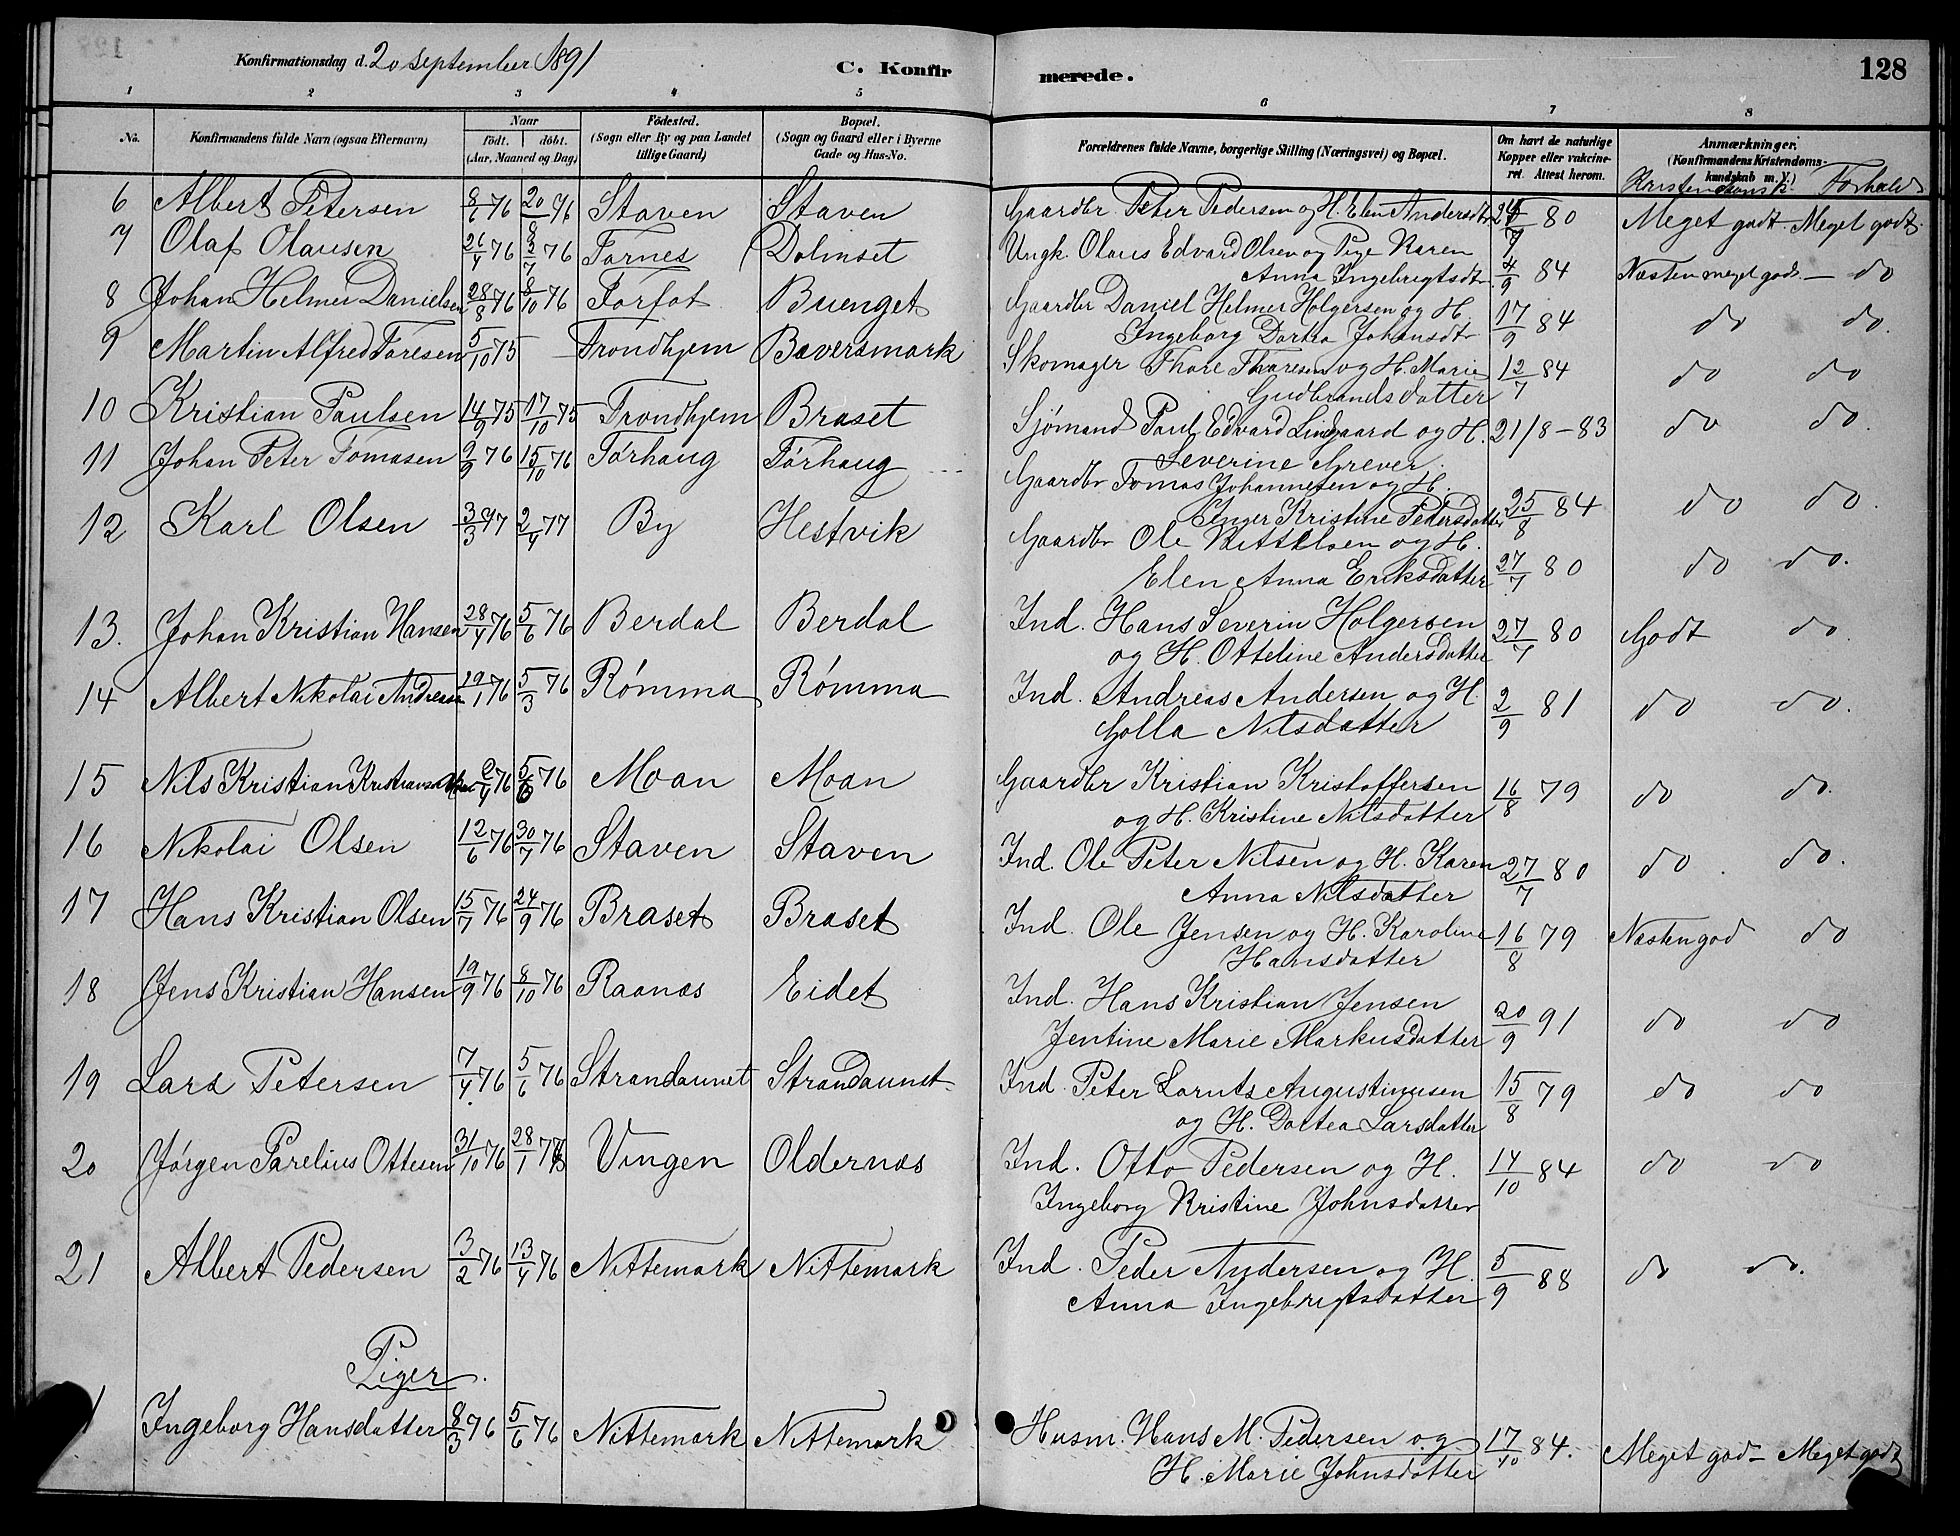 Konfirmationsdag d. 20 september 1891
C. Konfirmerede.
128
1 2 3 4 5 6 7 8
No.
Konfirmandens fulde Navn (ogsaa Efternavn)
Naar
födt. döbt.
(Aar, Maaned og Dag)
Födested.
(Sogn eller By og paa Landet tillige Gaard)
Bopæl.
(Sogn og Gaard eller i Byerne Gade og Hus-No.
Forældrenes fulde Navne, borgerlige Stilling (Næringsvei) og Bopæl.
Om havt de naturlige Kopper eller vakcineret. Attest herom.
Anmærkninger.
(Konfirmandens Kristendomskundskab m. V.)
Kristendomsk. Forhold
6 Albert Petersen 8/6 76 20/8 76 Staven Staven Gaardbr. Peter Pedersen og H. Elen Andersdtr 80 Meget godt. Meget godt.
7 Olaf Olausen 26/4 76 76 Fornes Dolmset Ungk. Olaus Edvard Olsen og Pige Karen
Anna Ingebrigtsdtr 4/9 84 Næsten meget godt. — do
8 Johan Helmer Danielsen 28/8 76 8/10 76 Forfot Buenget Gaardbr Daniel Helmer Holgersen og H.
Ingeborg Dortea Johansdtr 17/9 84 do do.
9 Martin Alfred Toresen 5/10 75 — Trondhjem Bæversmark Skomager Thore Thoresen og H. Marie
Gudbrandsdatter 12/7 84 do do
10 Kristian Paulsen 14/9 75 17/10 75 Trondhjem Braset Sjómand Paul Edvard Lindgaard og H.
Severine Grever. 21/8-83 do do.
11 Johan Peter Tomasen 9/9 76 15/10 76 Tórhaug Tórhaug Gaardbr Tomas Johannesen og H.
Inger Kristine Pedersdatter 25/8 84 do do.
12 Karl Olsen 3/3 77 2/4 77 By Hestvik Gaardbr Ole Kittelsen og H.
Elen Anna Eriksdatter 27/7 80 do do.
13. Johan Kristian Hansen 28/4 76 5/6 76 Berdal Berdal Ind. Hans Severin Holgersen
og H. Otteline Andersdatter 27/7 80 Godt do.
14 Albert Nikolai Andreasen 19/1 76 5/3 76 Rómma Rómma Ind. Andreas Andersen og H.
Golla Nilsdatter 2/9 81 do do.
15 Nils Kristian Kristiansen Moan 2/4 76 5/6 76 Moan Moan Gaardbr Kristian Kristoffersen
og H. Kristine Nilsdatter 16/8 79 do do.
16 Nikolai Olsen 12/6 76 30/7 76 Staven Staven Ind. Ole Peter Nilsen og H. Karen
Anna Nilsdatter 27/7 80 do. do.
17 Hans Kristian Olsen 15/7 76 24/9 76 Braset Braset Ind. Ole Jensen og H. Karoline
Hansdatter 16/8 79 Næsten god do
18 Jens Kristian Hansen 19/9 76 8/10 76 Raanas Eidet Ind. Hans Kristian Jensen
Jentine Marie Markusdatter 20/9 91 do do
19 Lars Petersen 7/4 76 5/6 76 Strandaunet Strandaunet Ind. Peter Lornts Augustinusen
og H. Dortea Larsdatter 15/8 79 do do
20 Jórgen Parelius Ottesen 31/10 76 28/1 77 Vingen Oldernas Ind. Otto Pedersen og H.
Ingeborg Kristine Johnsdatter 14/10 84 do do
21 Albert Pedersen 3/2 76 13/4 76 Nittemark Nittemark Ind. Peder Andersen og H.
Anna Ingebrigtsdatter 5/9 88 do do.
Piger.
1 Ingeborg Hansdatter 8/3 76 5/6 76 Nittemark Nittemark Husm. Hans M. Pedersen og
H. Marie Johnsdatter 17/10 84. Meget god - Meget godt